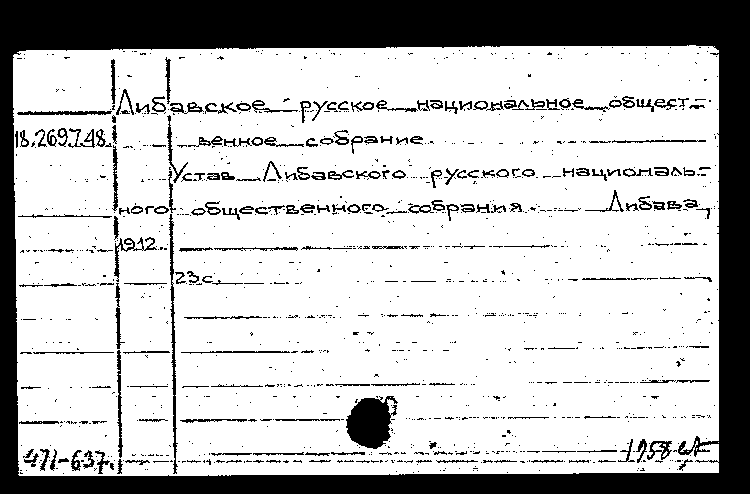 Либавское русское национальное общест-
18.269.7.48. венное собрание.
Устав Либавского русского националь-
ного общественного собрания. Либава,
1912.
23 с.
471-637. 1958